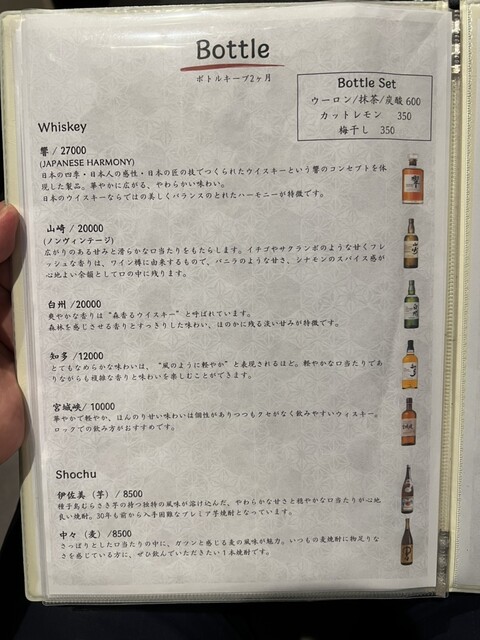 Bottle
ボトルキープ2ヶ月
Bottle Set
ウーロン/抹茶/炭酸 600
カットレモン 350
梅干し 350
Whiskey
響 / 27000
(JAPANESE HARMONY)
日本の四季・日本人の感性・日本の匠の技でつくられたウイスキーという響のコンセプトを体
現した製品。華やかに広がる、やわらかい味わい。
日本のウイスキーならではの美しくバランスのとれたハーモニーが特徴です。
山崎 / 20000
(ノンヴィンテージ)
広がりのある甘みと滑らかな口当たりをもたらします。イチゴやサクランボのような甘くフレ
ッシュな香りは、ワイン樽に由来するもので、バニラのような甘さ、シナモンのスパイス感が
心地よい余韻として口の中に残ります。
白州 /20000
爽やかな香りは"森香るウイスキー"と呼ばれています。
森林を感じさせる香りとすっきりした味わい、ほのかに残る淡い甘みが特徴です。
知多 /12000
とてもなめらかな味わいは、"風のように軽やか"と表現されるほど。軽やかな口当たりであ
りながらも複雑な香りと味わいを楽しむことができます。
宮城峡/ 10000
華やかで軽やか、ほんのり甘い味わいは個性がありつつもクセがなく飲みやすいウィスキー。
ロックでの飲み方がおすすめです。
Shochu
伊佐美（芋）/ 8500
種子島むらさき芋の持つ独特の風味が溶け込んだ、やわらかな甘さと穏やかな口当たりが心地
良い焼酎。30年も前から入手困難なプレミア芋焼酎となっています。
中々（麦）/8500
さっぱりとした口当たりの中に、ガツンと感じる麦の風味が魅力。いつもの麦焼酎に物足りな
さを感じている方に、ぜひ飲んでいただきたい1本焼酎です。
響
山崎
知多